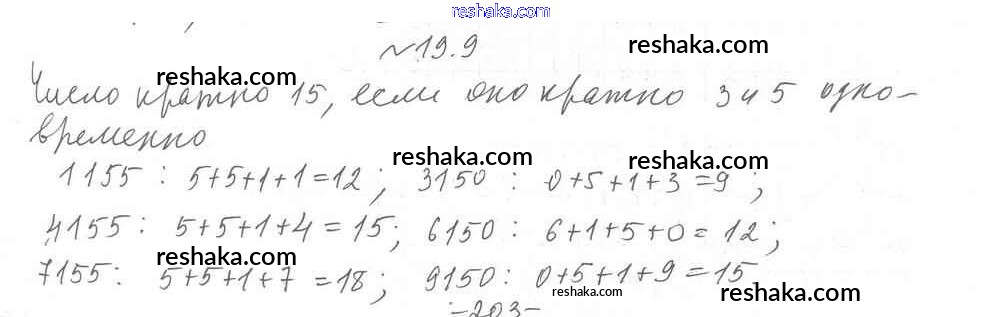 reshaka.com
№ 19.9 reshaka.com
reshaka.com
Число кратно 15, если оно кратно 3 и 5 одно-
временно
reshaka.com reshaka.com
1155 : 5+5+1+1=12; 3150 : 0+5+1+3=9;
4155: 5+5+1+4=15; 6150: 6+1+5+0=12;
reshaka.com
7155: 5+5+1+7=18; 9150: 0+5+1+9=15
reshaka.com reshaka.com
-203-